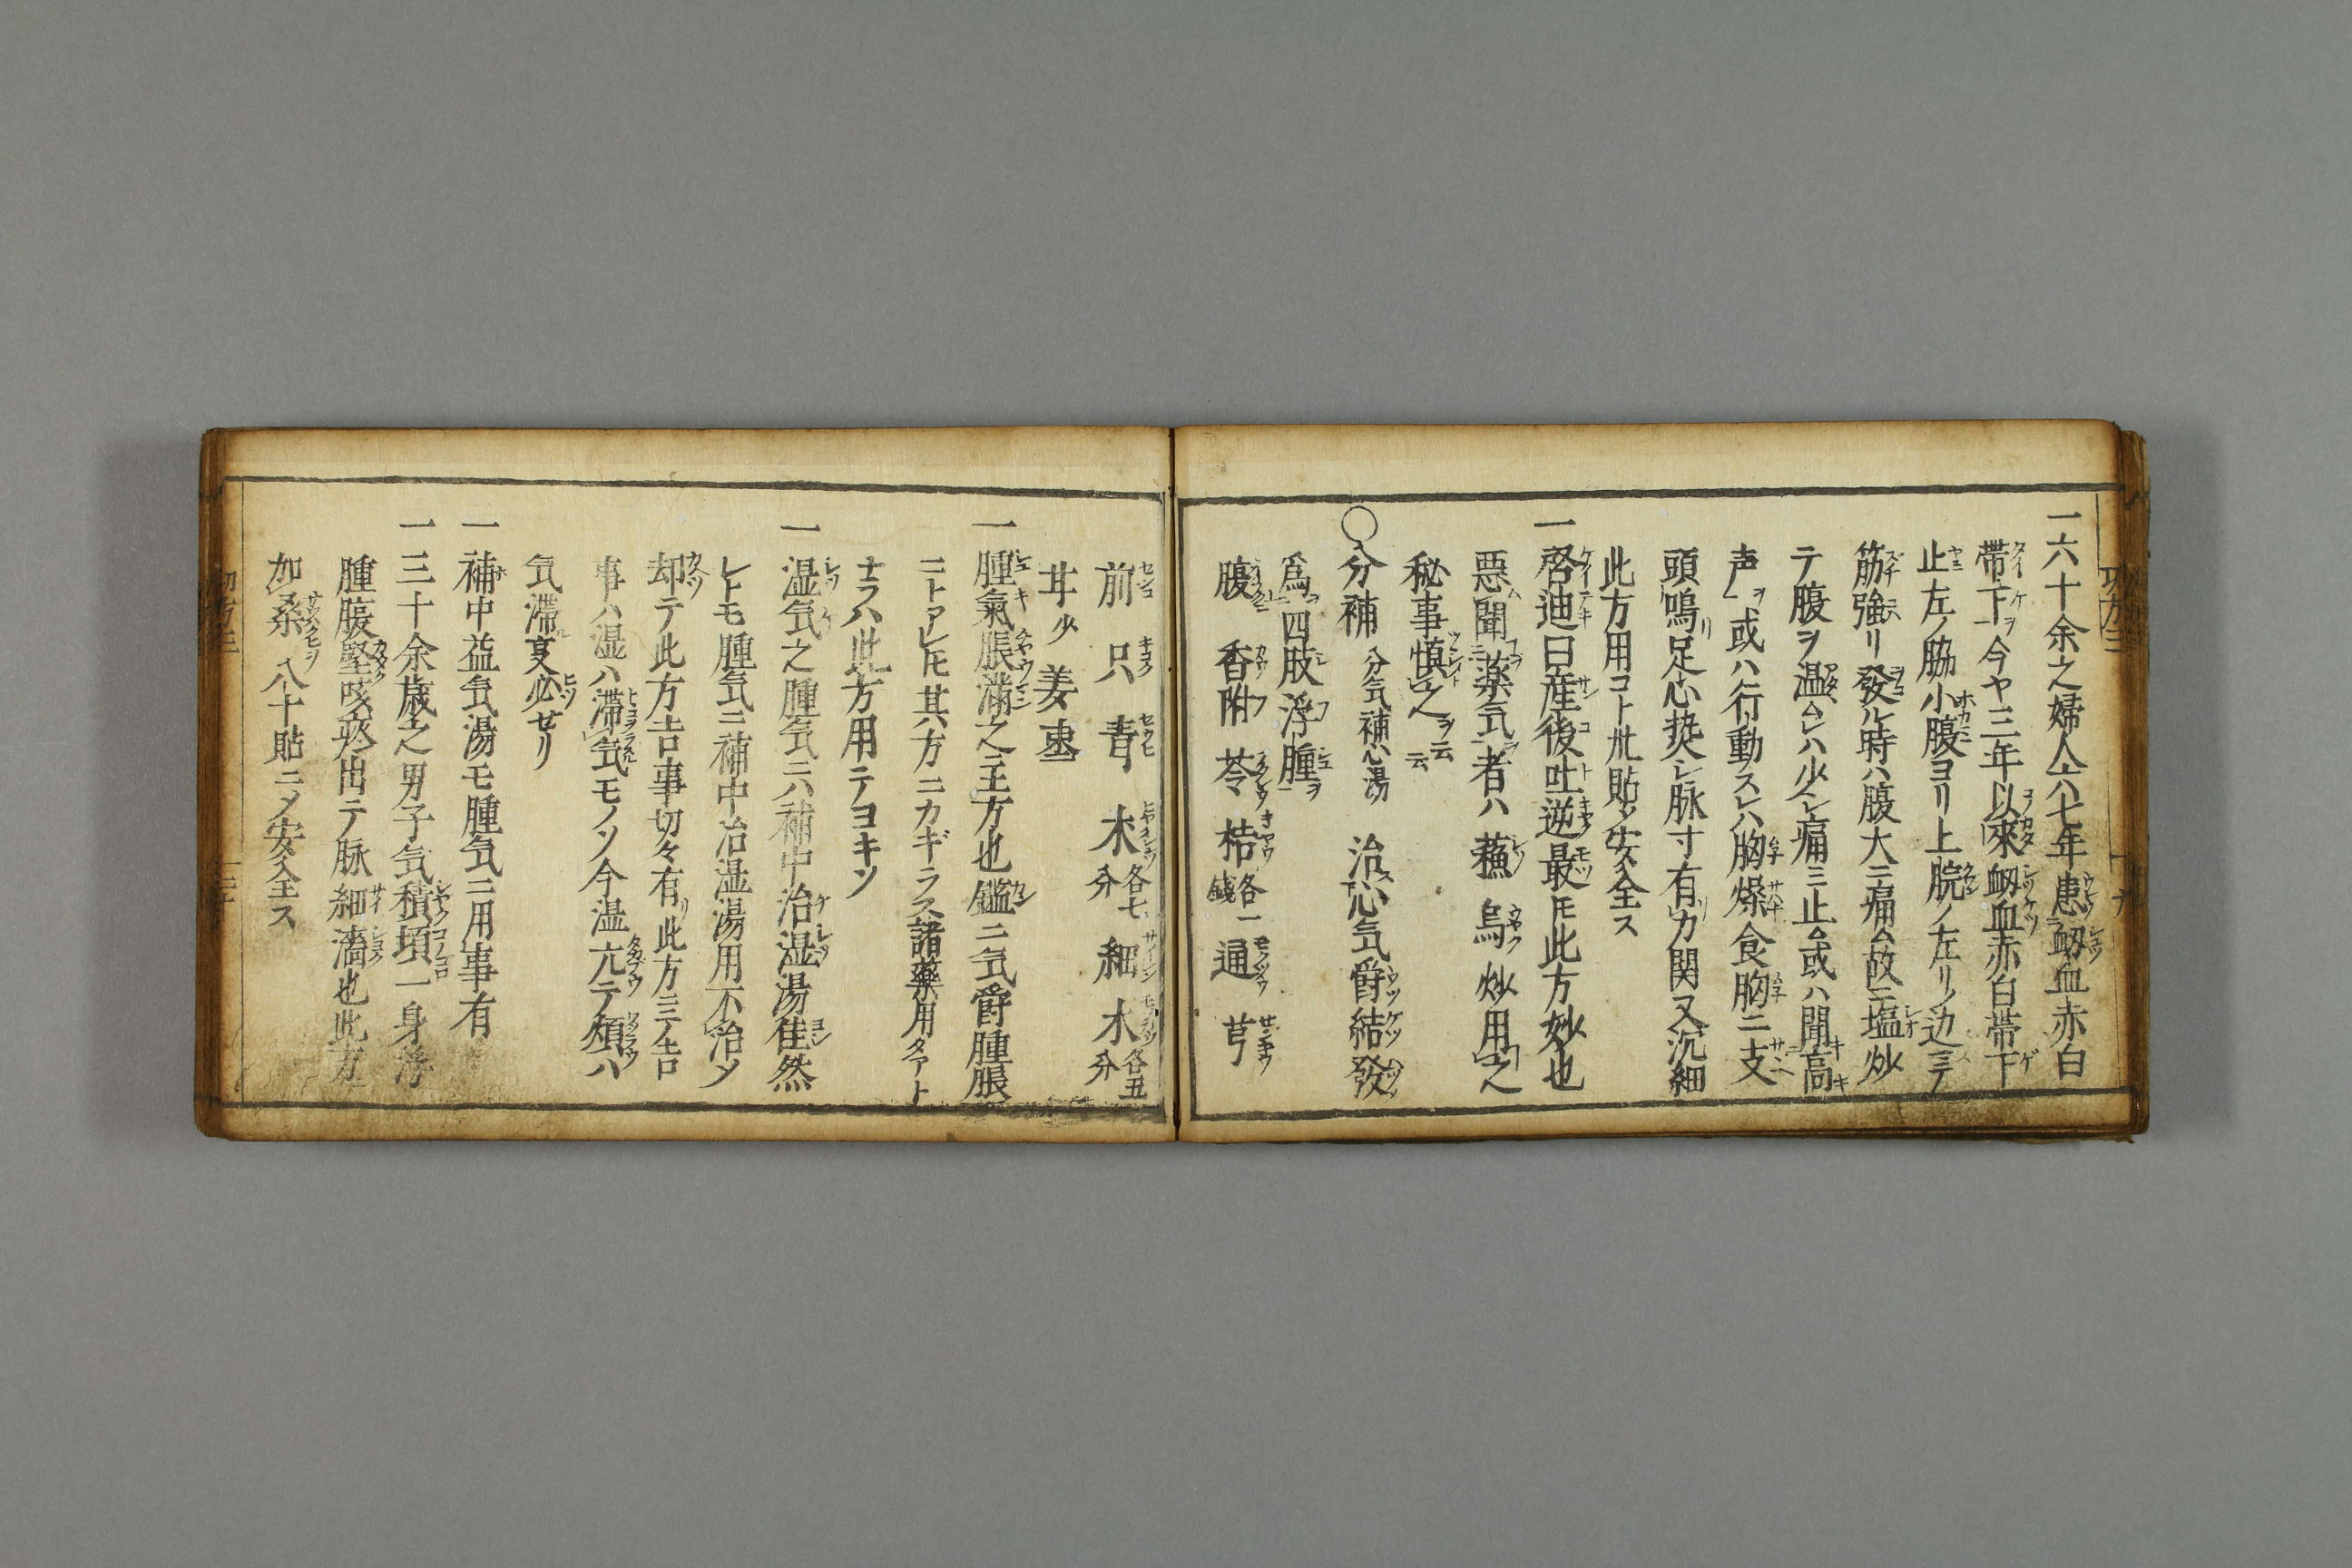 一六十余之婦人六七年患衂血赤白
帯下ヲ今ヤ三年以來衂血赤白帯下
止左ノ脇小腹ヨリ上脘ノ左リノ辺ニテ
筋強リ發ル時ハ腹大ニ痛ム故ニ塩炒
テ腹ヲ温ムレハ少シ痛ミ止ム或ハ聞高
声ヲ或ハ行動スレハ胸燥食胸ニ支
頭鳴足心熱シ脉寸有力関又沉細
此方用コト卅貼〆安全ス
一啓迪曰産後吐逆最モ此方妙也
悪聞薬気者ハ蘓烏炒用之
秘事慎之ヲ云云
○分補 分気補心湯 治心気欝結發
為四肢浮腫ヲ
腹 香附 苓 桔各一錢 通 芎
前 只 青 木各七分 細 木各五分
甘少 姜 棗
一腫氣脹滿之主方也鑑ニ気欝腫脹
ニトアレモ其方ニカギラス諸藥用タアト
ナラハ此方用テヨキソ
一湿気之腫気ニハ補中治湿湯佳然
レトモ腫気ニ補中治湿湯用不治〆
却テ此方吉事切々有リ此方ニテ吉
事ハ湿ハ滞気モノソ今温亢テ煩ハ
気滞㕝必セリ
一補中益気湯モ腫気ニ用事有
一三十余歳之男子気積頃一身浮
腫腹堅咳痰出テ脉細濇也此方ニ
加桑八十貼ニ〆安全ス